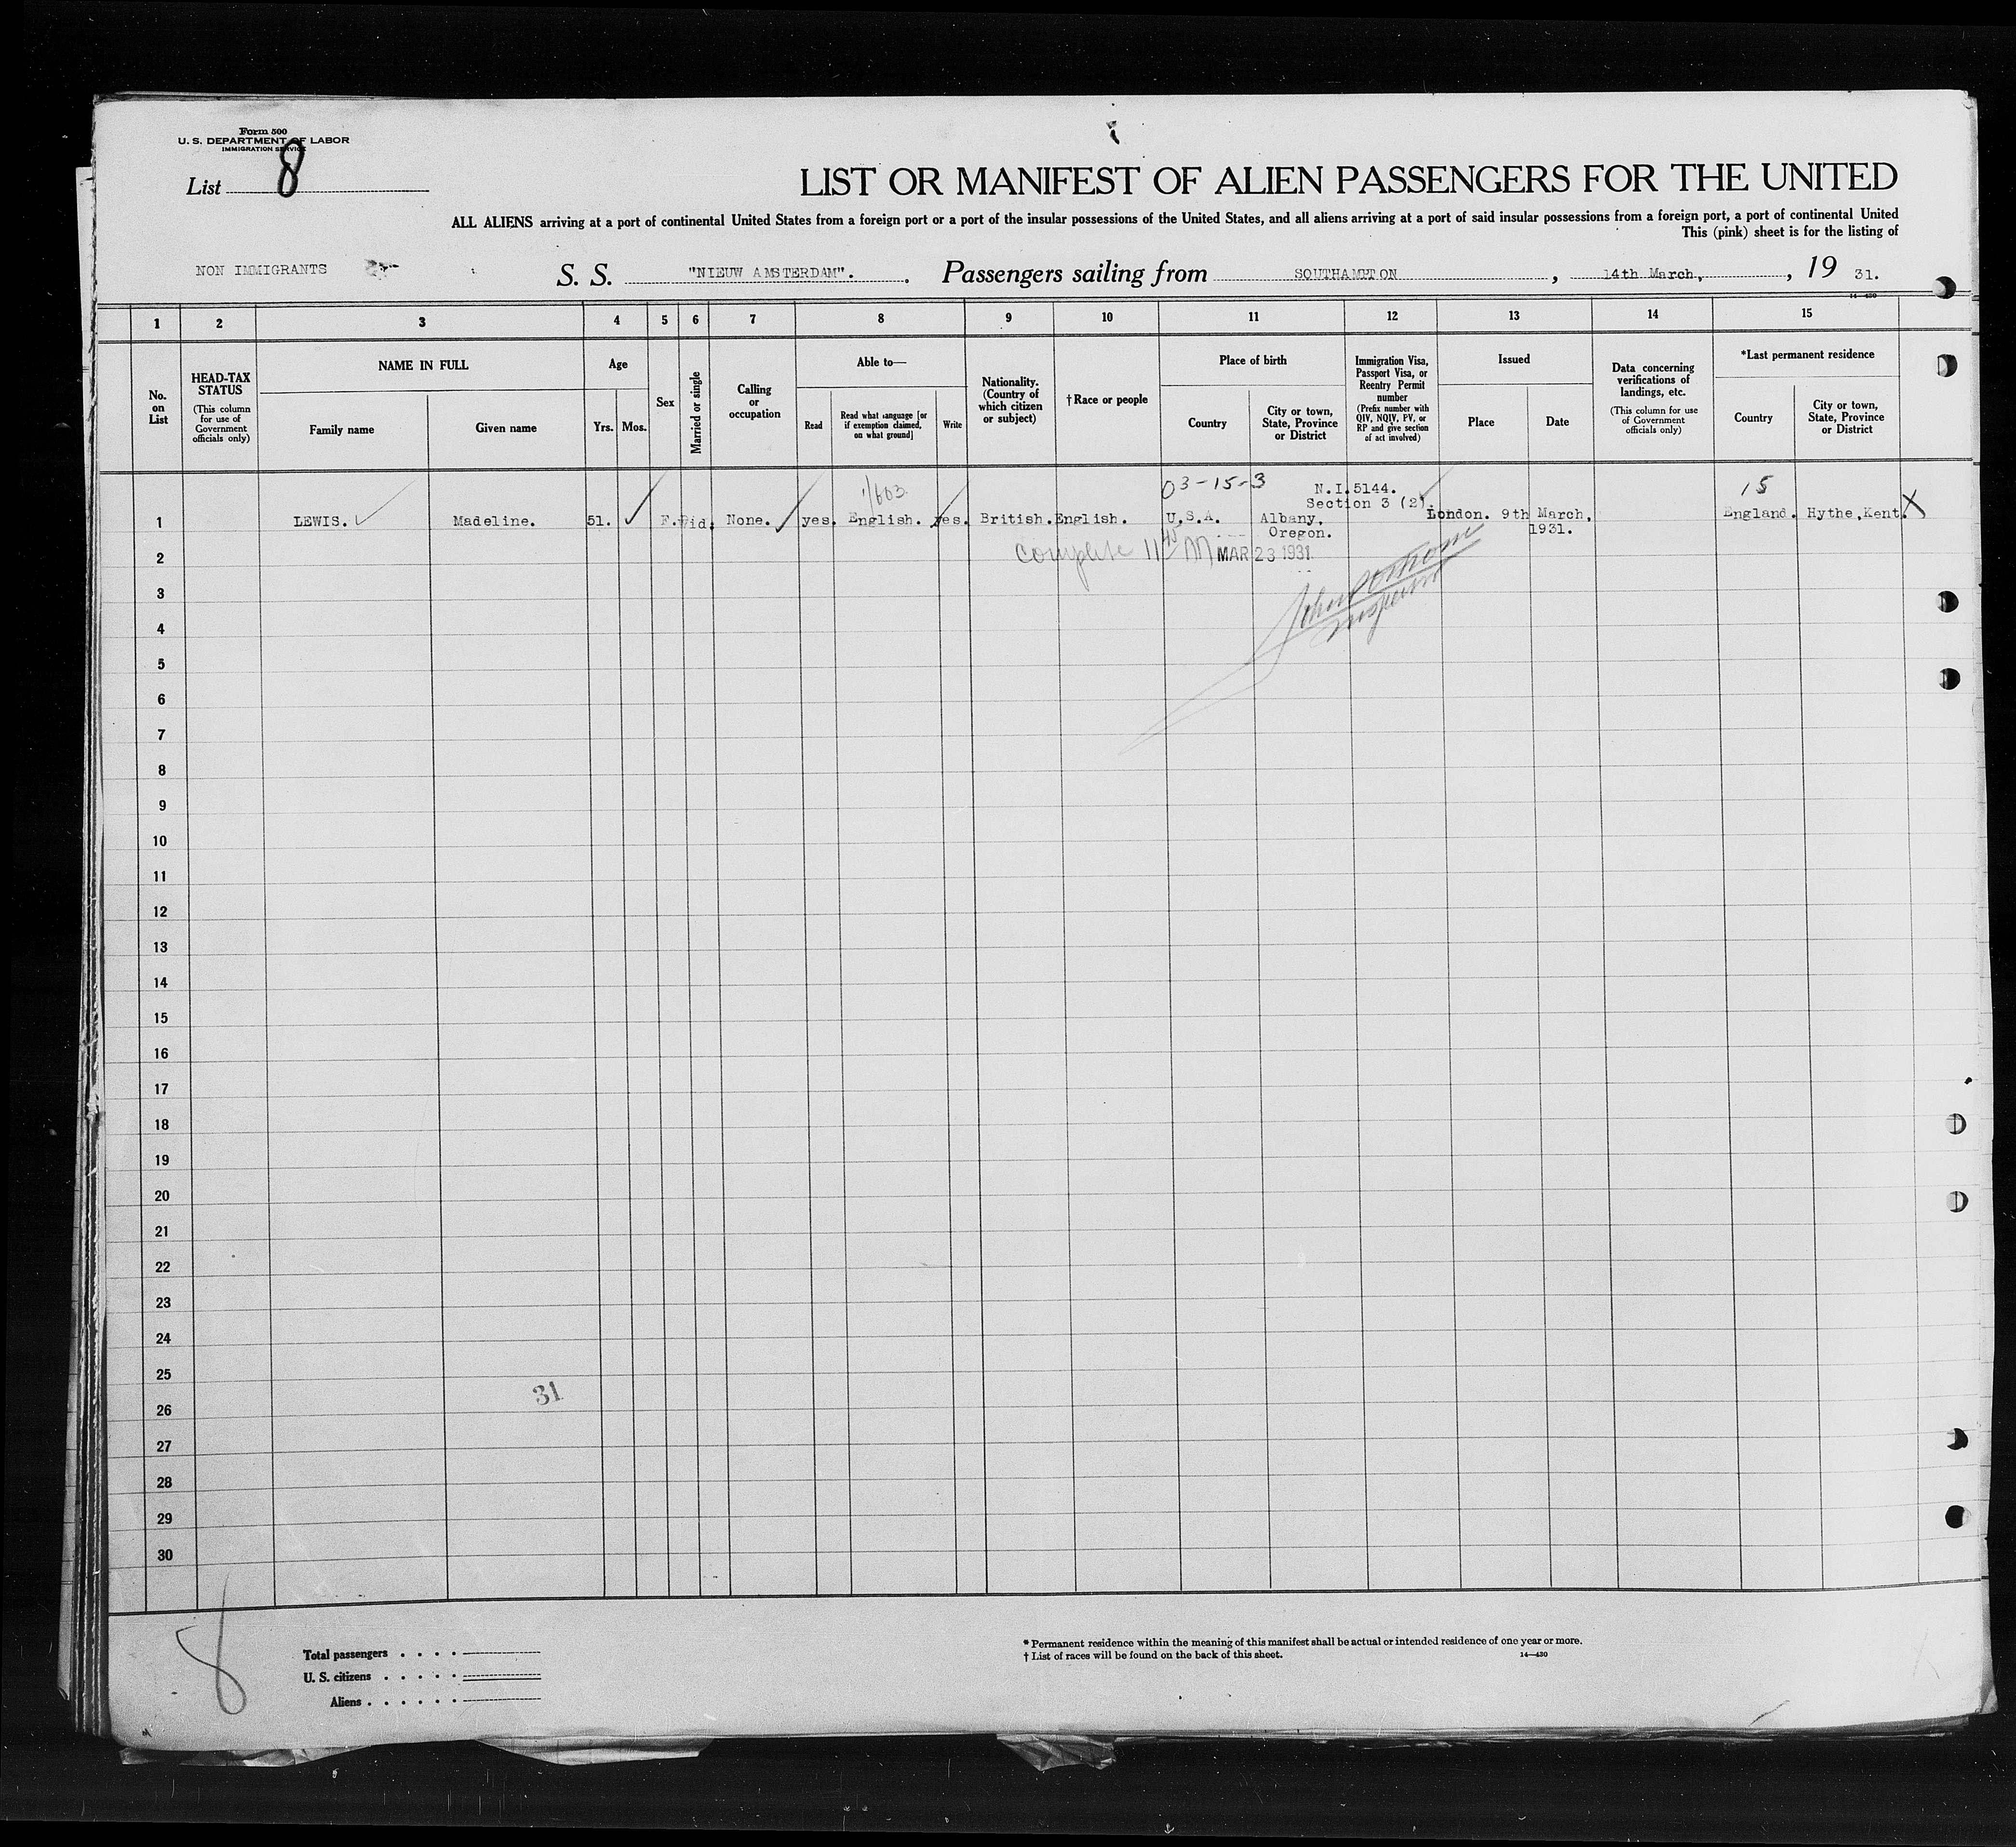 Form 500
U. S. DEPARTMENT OF LABOR
IMMIGRATION SERVICE
List 8
LIST OR MANIFEST OF ALIEN PASSENGERS FOR THE UNITED
ALL ALIENS arriving at a port of continental United States from a foreign port or a port of the insular possessions of the United States, and all aliens arriving at a port of said insular possessions from a foreign port, a port of continental United
This (pink) sheet is for the listing of
NON IMMIGRANTS S. S. "NIEUW AMSTERDAM". Passengers sailing from SOUTHAMPTON, 14th March, , 19 31.
14—430
1 2 3 4 5 6 7 8 9 10 11 12 13 14 15
No. on List
HEAD-TAX STATUS (This column for use of Government officials only)
NAME IN FULL
Family name
Given name
Age
Yrs. Mos.
Sex
Married or single
Calling or occupation
Able to—
Read
Read what language [or if exemption claimed, on what ground]
Write
Nationality. (Country of which citizen or subject)
†Race or people
Place of birth
Country
City or town, State, Province or District
Immigration Visa, Passport Visa, or Reentry Permit number (Prefix number with QIV, NQIV, PV, or RP and give section of act involved)
Issued
Place
Date
Data concerning verifications of landings, etc. (This column for use of Government officials only)
*Last permanent residence
Country
City or town, State, Province or District
03-15-3 15
N.I.5144.
Section 3 (2).
1 LEWIS. Madeline. 51. F. Wid. None. yes. English. yes. British. English. U.S.A. Albany, London. 9th March, England. Hythe,Kent. X
Oregon. 1931.
2 complete 11 40 MAR 23 1931
3
4
5
6
7
8
9
10
11
12
13
14
15
16
17
18
19
20
21
22
23
24
25
31
26
27
28
29
30
8
Total passengers . . . .
U. S. citizens . . . . .
Aliens . . . . . .
* Permanent residence within the meaning of this manifest shall be actual or intended residence of one year or more.
† List of races will be found on the back of this sheet.
14—430